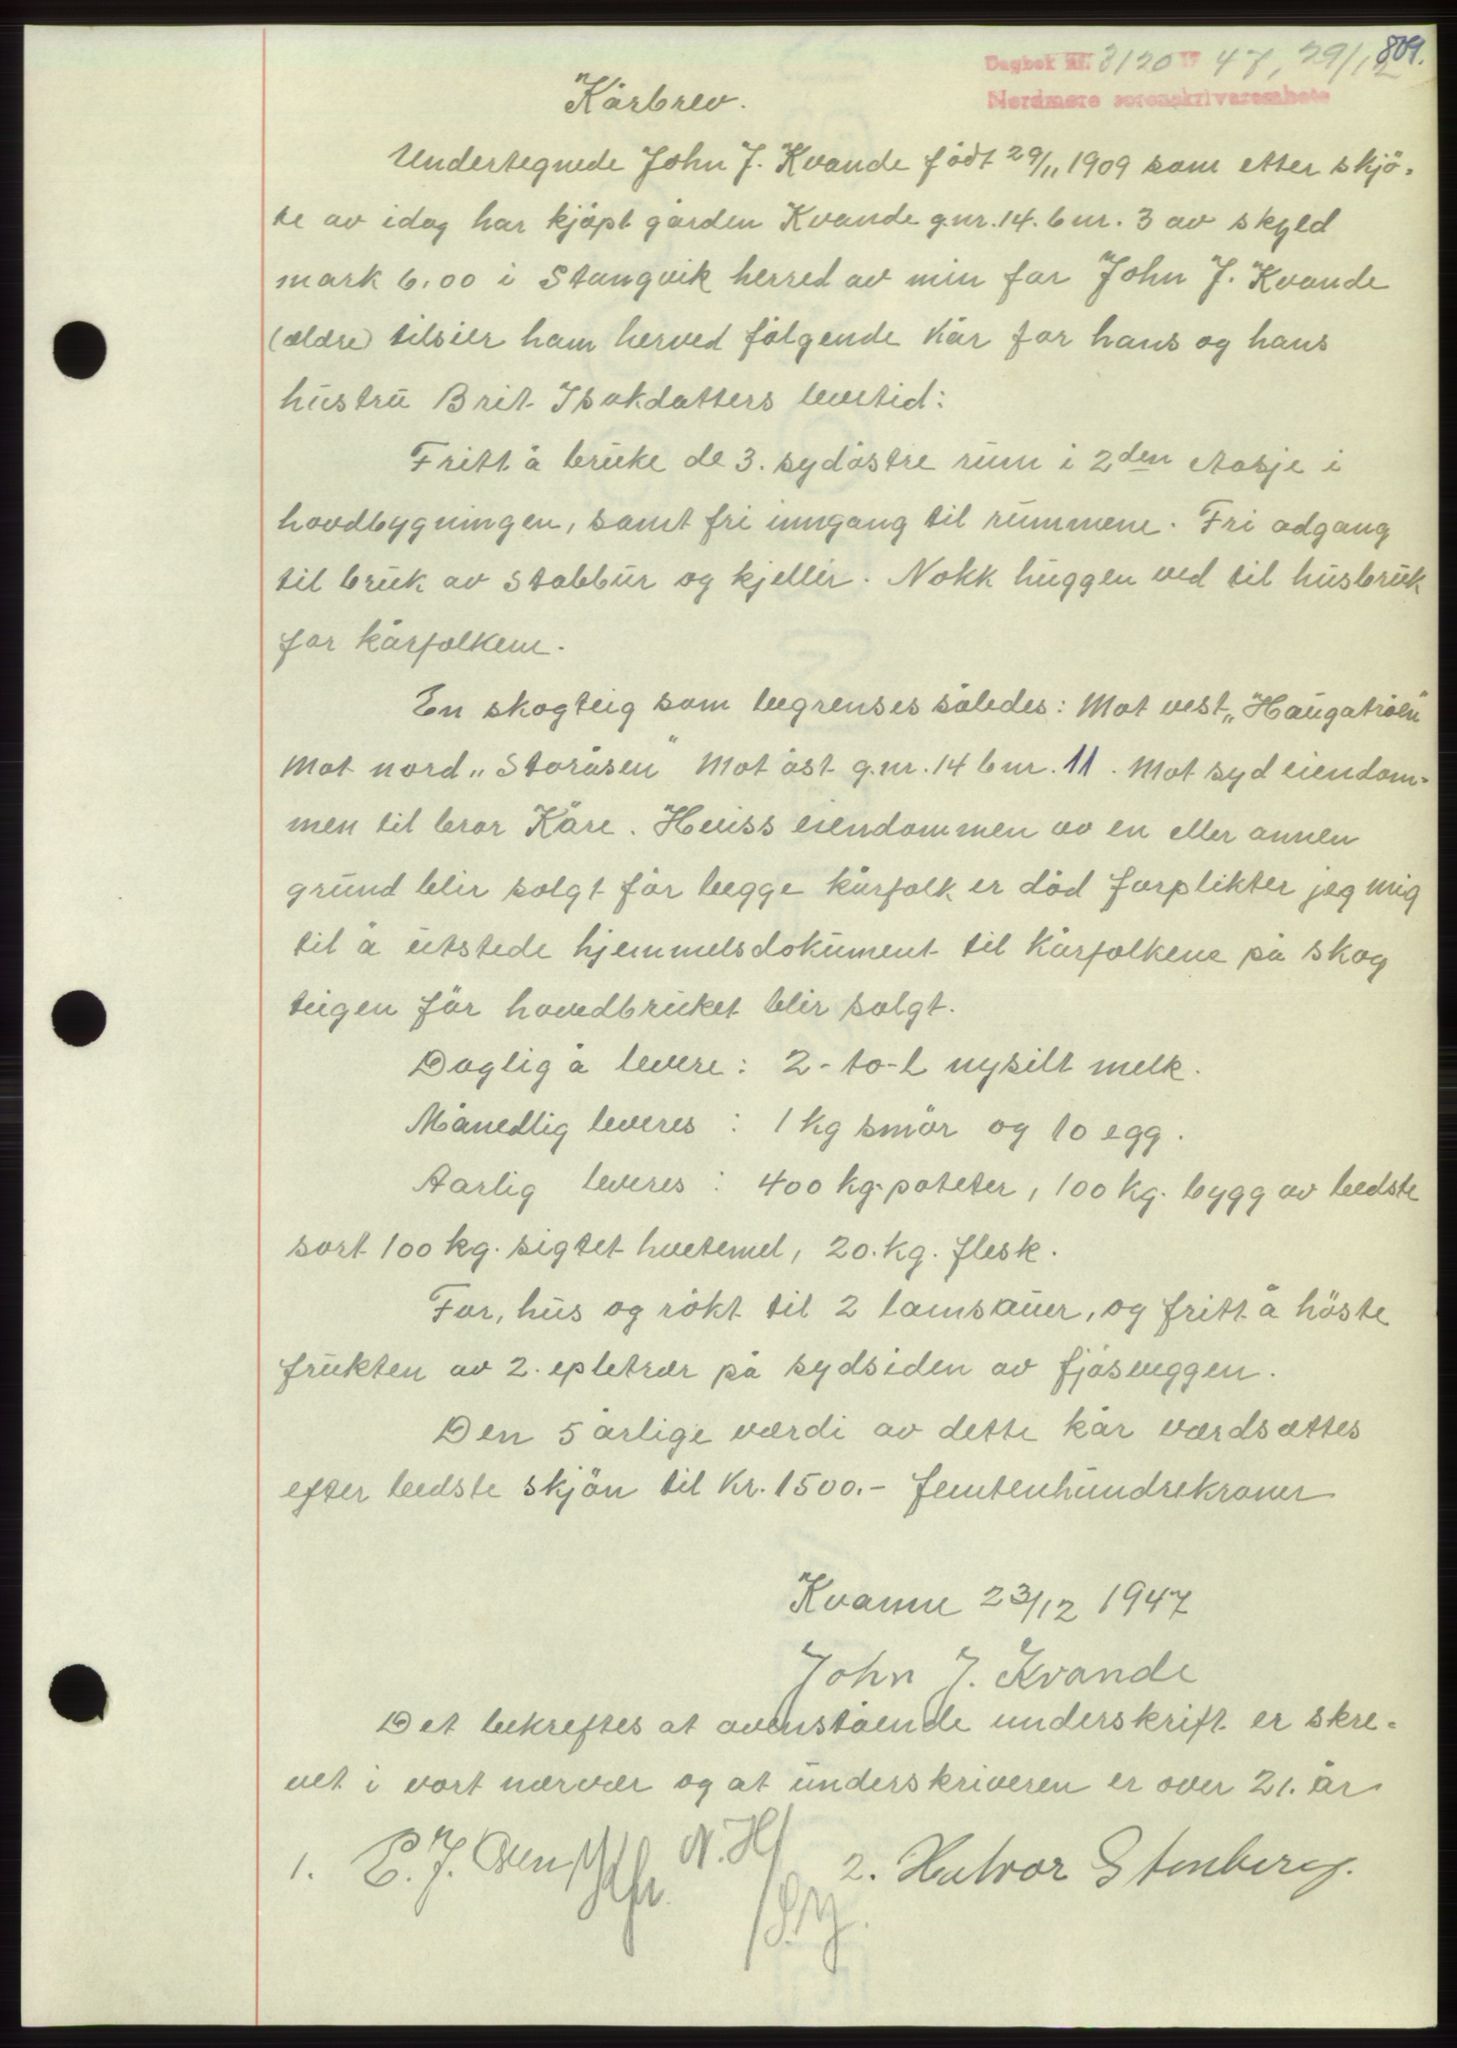 809.
Dagbok nr. 3120 19 47, 29/12
Nordmøre sorenskriverembete
Kårbrev.
Undertegnede John J. Kvande födt 29/11 1909 som etter skjö-
te av idag har kjöpt gården Kvande g.nr. 14. bnr. 3 av skyld
mark 6.00 i Stangvik herred av min far John J. Kvande
(ældre) tilsier ham herved fölgende kår for hans og hans
hustru Brit Isakdatters levetid:
Fritt å bruke de 3. sydöstre rum i 2den etasje i
hovdbygningen, samt fri inngang til rummene. Fri adgang
til bruk av Stabbur og kjeller. Nokk huggen ved til husbruk
for kårfolkene.
En skogteig som begrenses således: Mot vest „Haugatröen"
Mot nord „Storåsen" Mot öst g.nr. 14 bnr. 11. Mot syd eiendom-
men til bror Kåre. Hviss eiendommen av en eller annen
grund blir solgt för begge kårfolk er död forplikter jeg mig
til å utstede hjemmelsdokument til kårfolkene på skog
teigen för hovedbruket blir solgt.
Daglig å levere: 2-to-l nysilt melk.
Månedlig leveres : 1 kg smör og 10 egg.
Aarlig leveres : 400 kg. poteter, 100 kg. bygg av bedste
sort 100 kg. sigtet hvetemel, 20. kg. flesk.
For, hus og rökt til 2 lamsauer, og fritt å höste
frukten av 2. epletrær på sydsiden av fjösveggen.
Den 5 årlige værdi av dette kår værdsættes
efter bedste skjön til Kr. 1500.- femtenhundrekroner
Kvanne 23/12 1947
John J. Kvande
Det bekreftes at ovenstående underskrift er skre-
vet i vort nærvær og at underskriveren er over 21. år
1. E. J. 2. Halvor Stenberg.